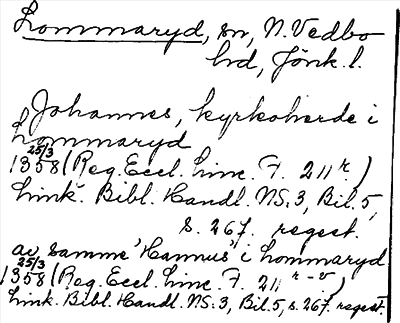 Lommaryd, sn, N. Vedbo
hd, Jönk. l.
Johannes, kyrkoherde i
Lommaryd
25/3
1358 (Reg. Eccl. Linc. F. 211 r.)
Link. Bibl. Handl. NS. 3, Bil. 5,
s. 267. regest.
av samme "Hannus" i Lommaryd
25/3
1358 (Reg. Eccl. Linc. F. 211 r-v)
Link. Bibl. Handl. NS. 3, Bil. 5, s. 267. regest.